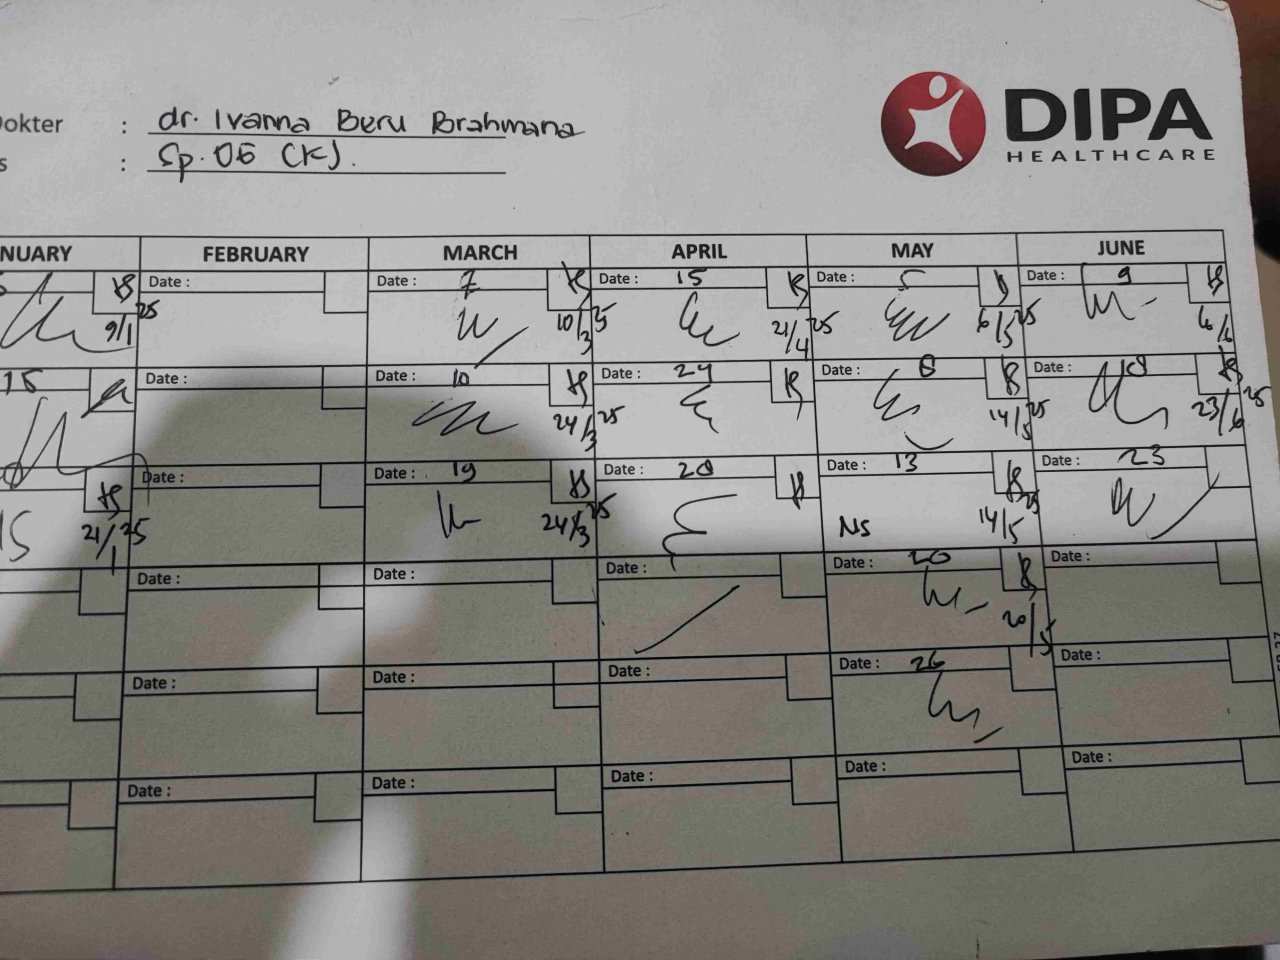 Dokter : dr. Ivanna Beru Brahmana
s : Sp. OG (K).
DIPA
HEALTHCARE
NUARY FEBRUARY MARCH APRIL MAY JUNE
Date : Date : 7 Date : 15 Date : 5 Date : 9
9/1 25 10/3 25 21/4 25 6/5 25 6/6
15 Date : Date : 10 Date : 24 Date : 8 Date : 18
24/3 25 14/5 25 23/6 25
Date : Date : 19 Date : 28 Date : 13 Date : 23
21/1 25 24/3 25 NS 14/5 25
Date : Date : Date : Date : 20 Date :
20/5
Date : Date : Date : Date : 26 Date :
Date : Date : Date : Date : Date :